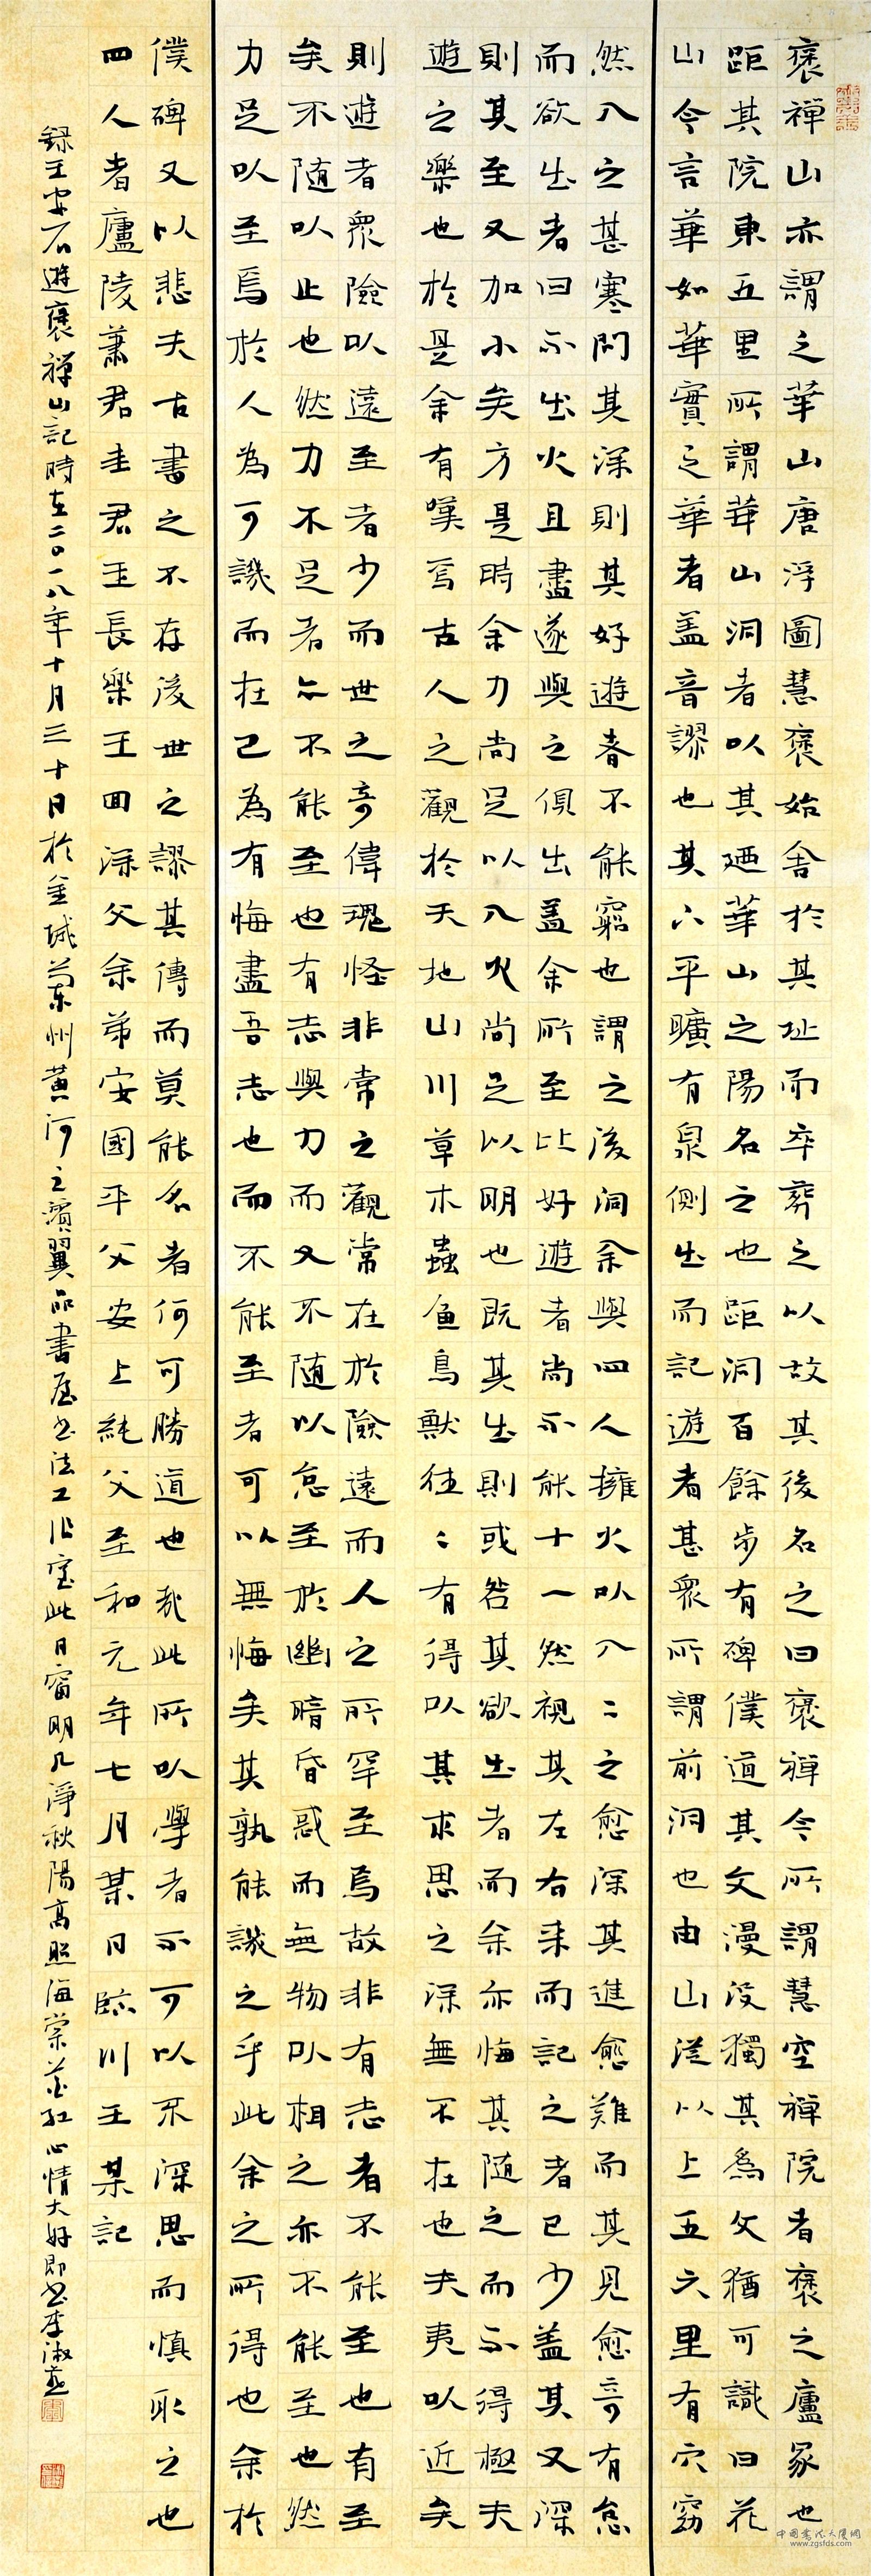 褒禪山亦謂之華山唐浮圖慧褒始舍於其址而卒葬之以故其後名之曰褒禪今所謂慧空禪院者褒之廬冢也
距其院東五里所謂華山洞者以其廼華山之陽名之也距洞百餘步有碑僕道其文漫沒獨其為文猶可識曰花
山今言華如華實之華者蓋音謬也其下平曠有泉側出而記遊者甚眾所謂前洞也由山從以上五六里有穴窈
然入之甚寒問其深則其好遊者不能窮也謂之後洞余與四人擁火以入〻之愈深其進愈難而其見愈奇有怠
而欲出者曰不出火且盡遂與之俱出蓋余所至比好遊者尚不能十一然視其左右來而記之者已少蓋其又深
則其至又加小矣方是時余力尚足以入火尚足以明也既其出則或咎其欲出者而余亦悔其隨之而不得極夫
遊之樂也於是余有嘆焉古人之觀於天地山川草木蟲魚鳥獸往〻有得以其求思之深無不在也夫夷以近矣
則遊者眾險以遠至者少而世之奇偉瑰怪非常之觀常在於險遠而人之所罕至焉故非有志者不能至也有至
矣不隨以止也然力不足者亦不能至也有志與力而又不隨以怠至於幽暗昏惑而無物以相之亦不能至也然
力足以至焉於人為可譏而在己為有悔盡吾志也而不能至者可以無悔矣其孰能譏之乎此余之所得也余於
僕碑又以悲夫古書之不存後世之謬其傳而莫能名者何可勝道也哉此所以學者不可以不深思而慎取之也
四人者廬陵蕭君圭君玉長樂王回深父余弟安國平父安上純父至和元年七月某日臨川王某記
錄王安石遊褒禪山記時在二〇一八年十月三十日於金城蘭州黃河之濱翼品書屋書法工作室此日窗明几淨秋陽高照海棠花紅心情大好即書李淑燕
中国書法大廈網
www.zgsfds.com